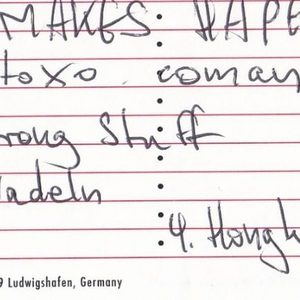 MAKES: HAPE
toxo comany
rong Stuff
adeln
4. Hongk
9 Ludwigshafen, Germany